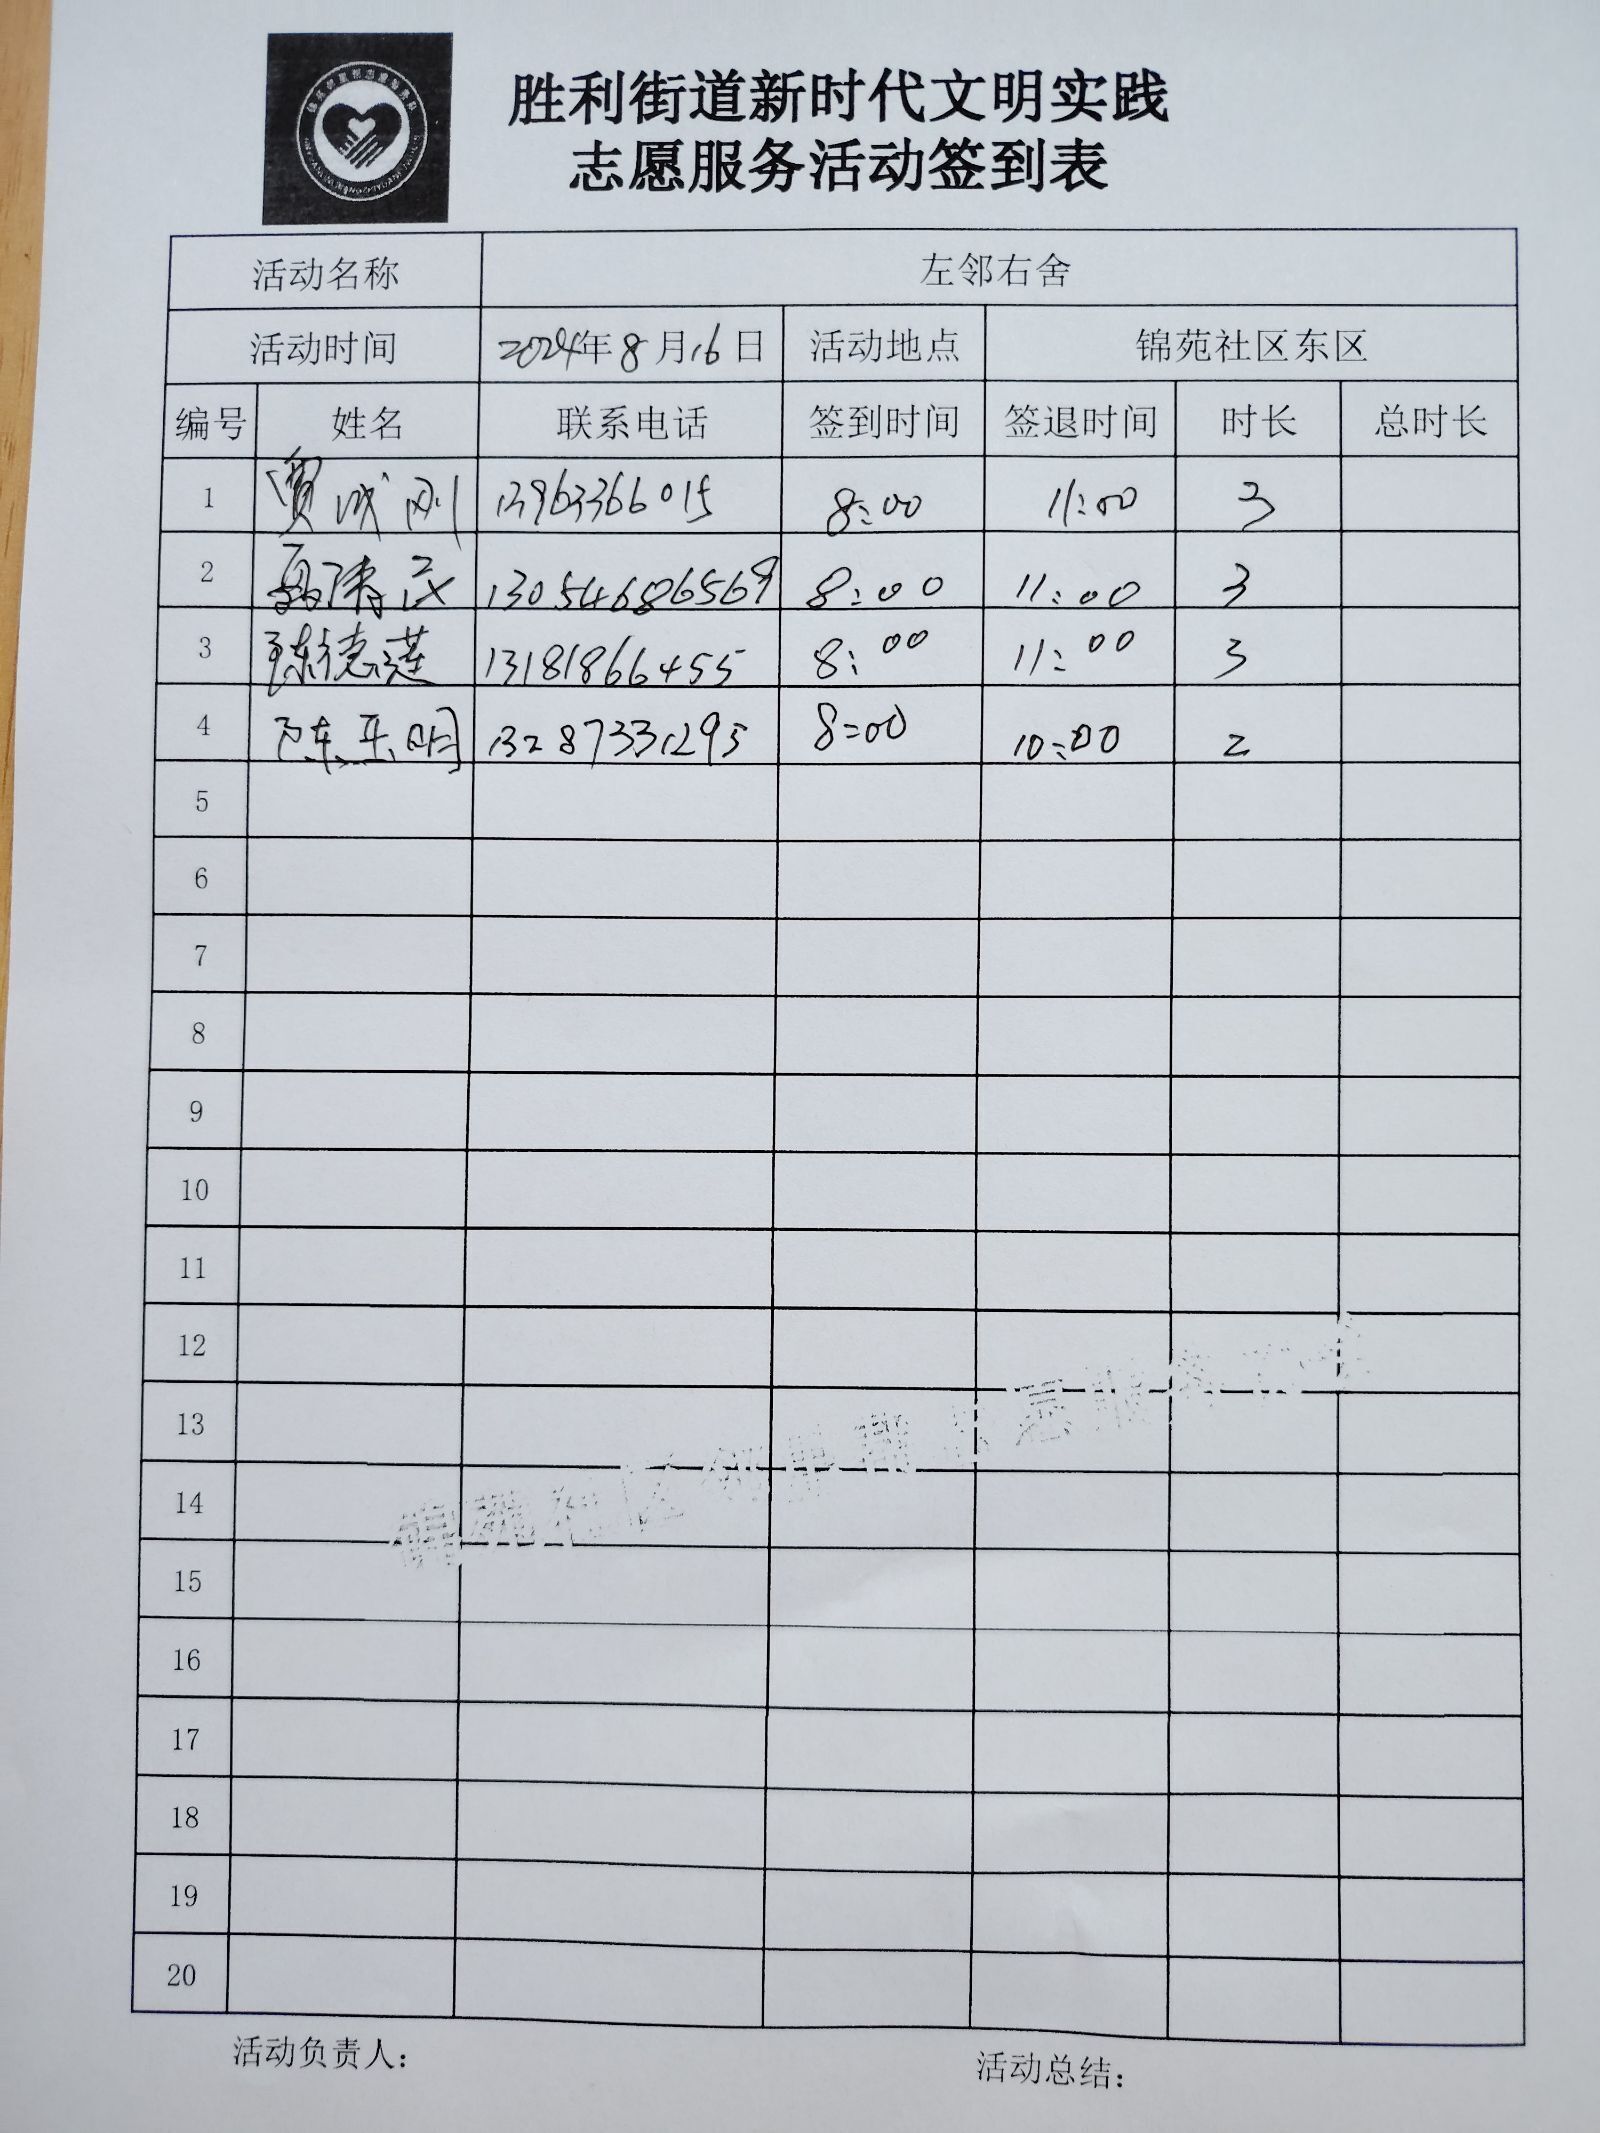 胜利街道新时代文明实践
志愿服务活动签到表
活动名称 左邻右舍
活动时间 2024年8月16日 活动地点 锦苑社区东区
编号 姓名 联系电话 签到时间 签退时间 时长 总时长
1 贾成刚 13963366015 8:00 11:00 3
2 13054686569 8:00 11:00 3
3 陈德莲 13181866455 8:00 11:00 3
4 陈玉明 13287331295 8:00 10:00 2
5
6
7
8
9
10
11
12
13
14
15
16
17
18
19
20
活动负责人: 活动总结: